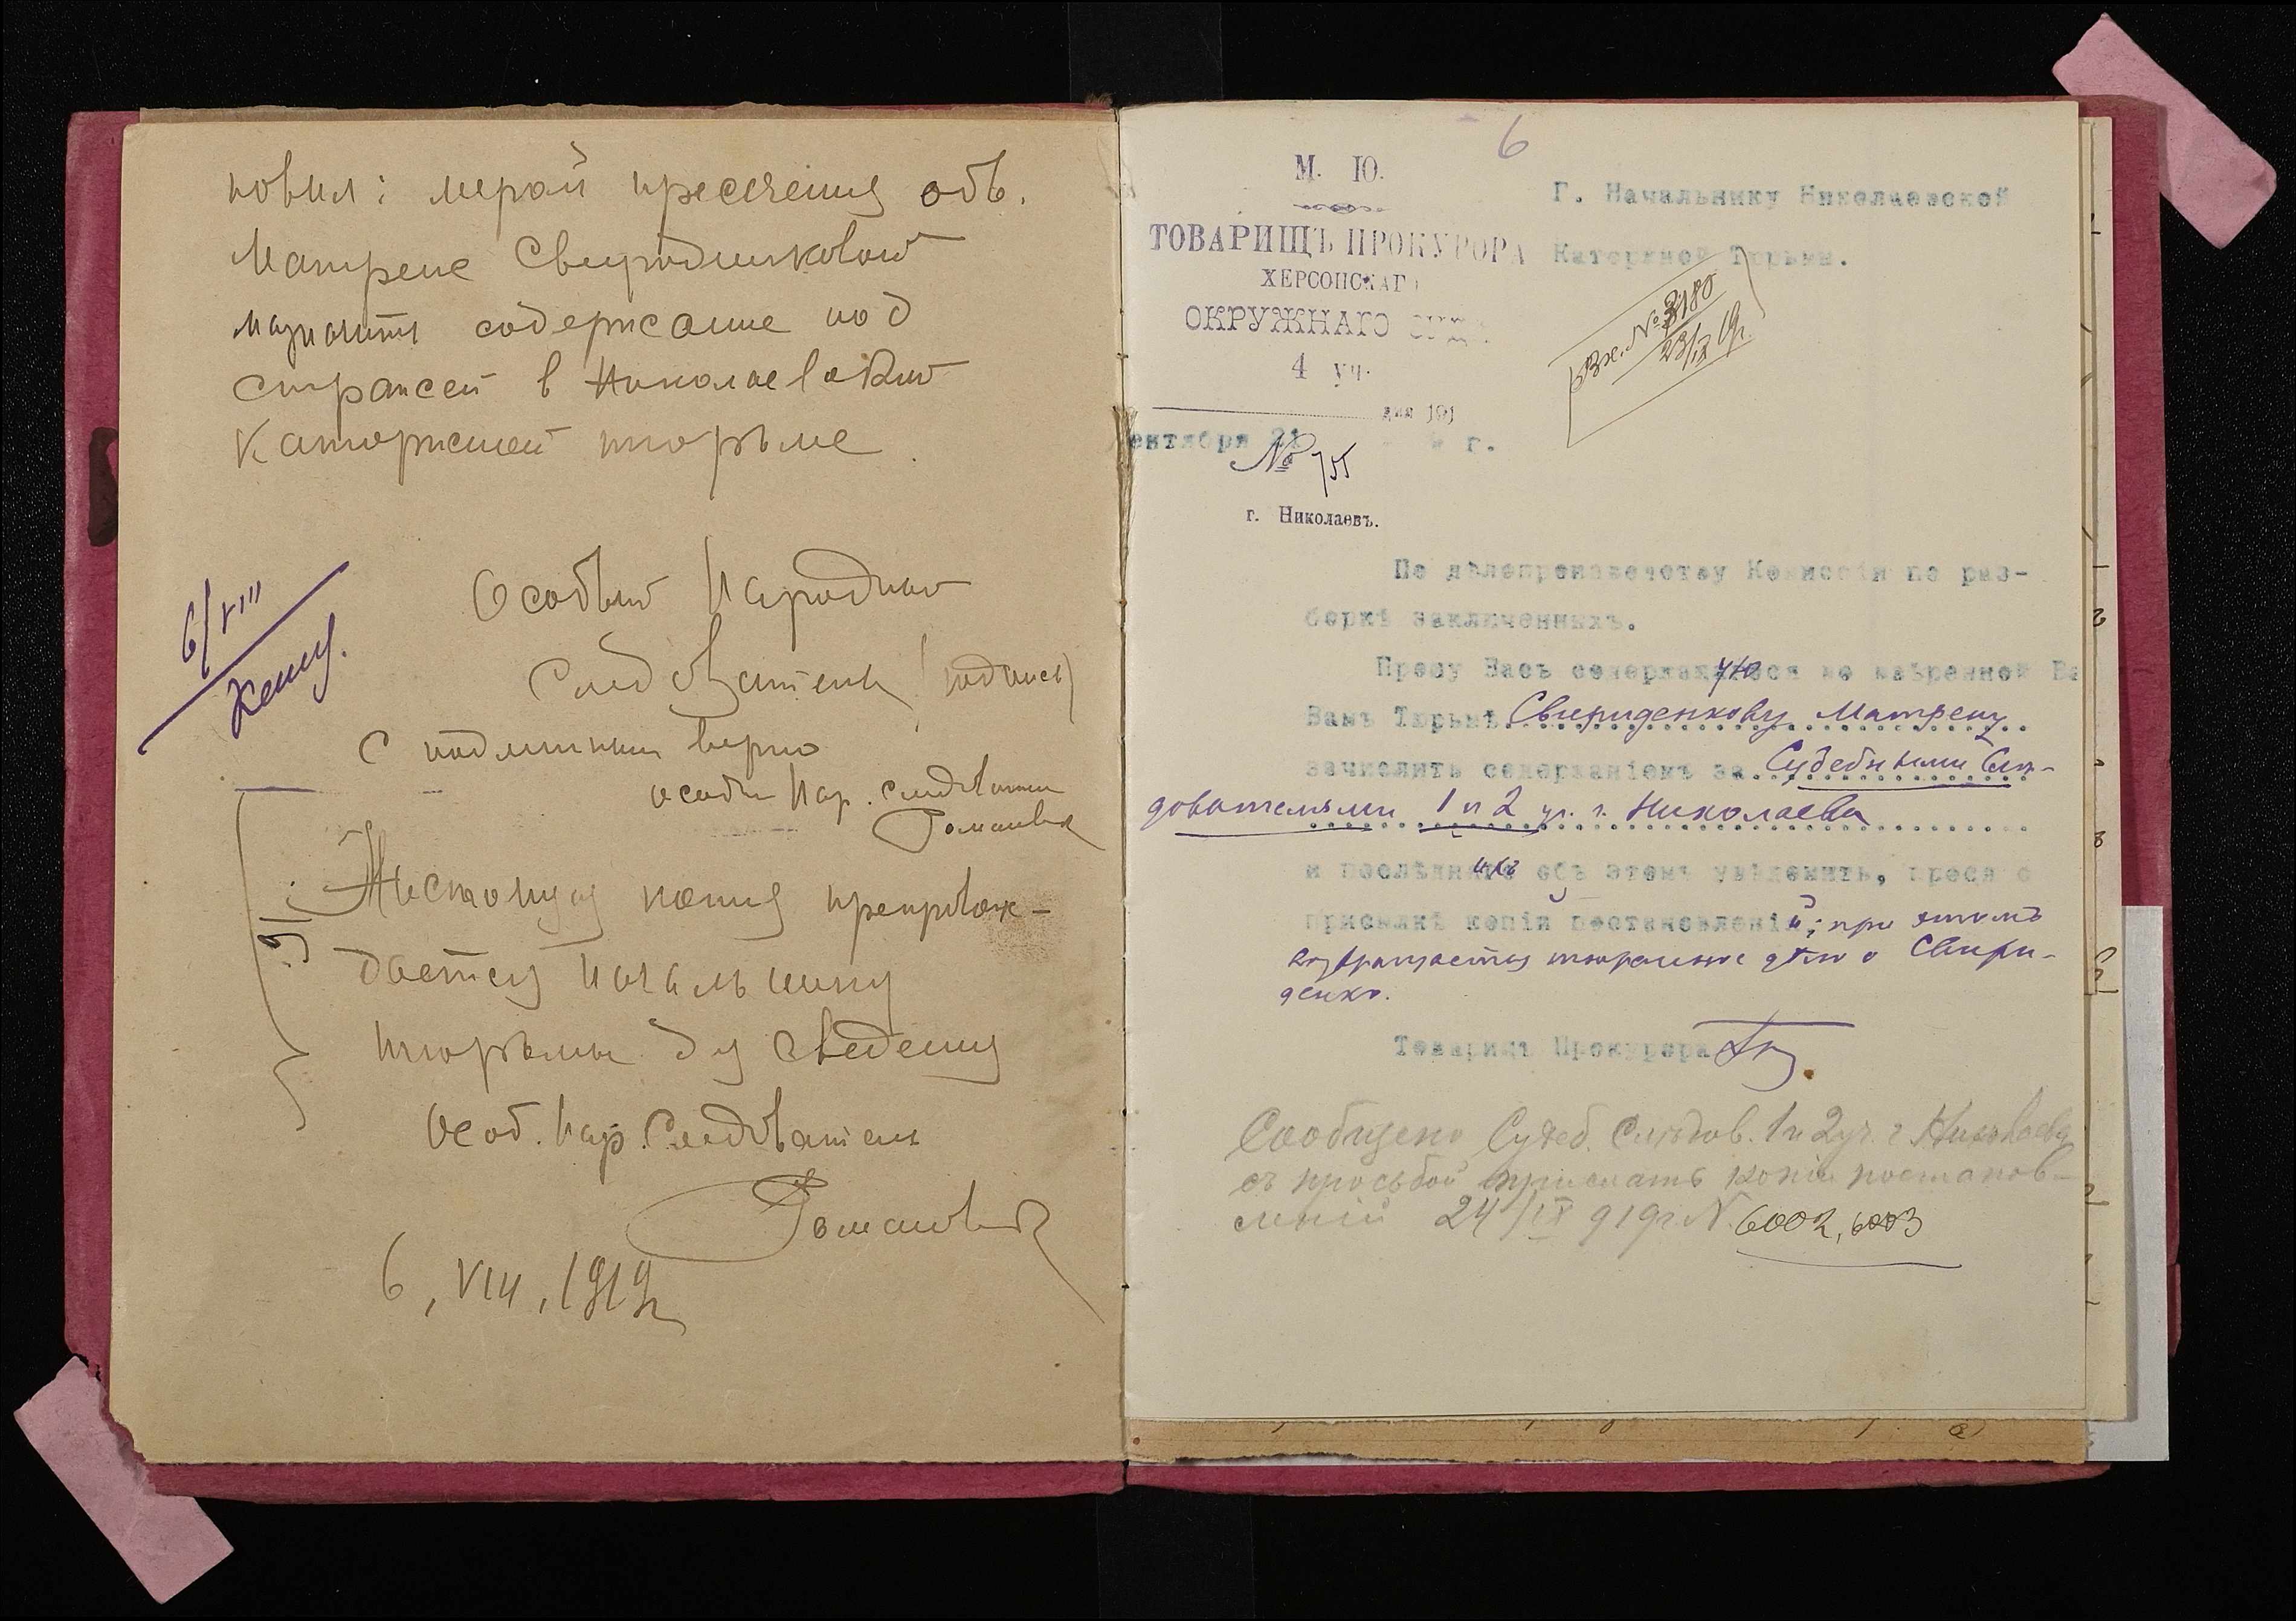 новил: мерой пресечения объ.
Матрене Свиридинковой
избрать содержание под
стражей в Николаевской
Каторжной тюрьме.
6/VIII
Особый Народный
Следователь (подпись)
С подлинным верно
Особый Нар. Следователь
Романов
Настоящая копия препровож-
дается Начальнику
тюрьмы для сведения
Особ. Нар. Следователь
6, VIII, 1919 г
6
М. Ю.
ТОВАРИЩЪ ПРОКУРОРА
ХЕРСОНСКАГО
ОКРУЖНАГО СУДА.
4 уч.
дня 191
ентября 21 г.
№ 755
г. Николаевъ.
Г. Начальнику Николаевской
Каторжной Тюрьмы.
Вх. № 3180
23/IX 19г.
По дѣлопроизводству Комиссіи по раз-
боркѣ заключенныхъ.
Прошу Васъ содержащуюся во ввѣренной Ва
Вамъ Тюрьмѣ Свириденкову Матрену
зачислить содержаніемъ за Судебными Слѣ-
дователями 1 и 2 уч. г. Николаева
и послѣднихъ объ этомъ увѣдомить, прося о
присылкѣ копій постановленій; при этомъ
возвращается тюремное дѣло о Свири-
денко.
Товарищъ Прокурора
Сообщено Судеб. Слѣдов. 1 и 2 уч. г. Николаева
съ просьбой прислать копіи постанов-
леній 24/IX 919 г. N. 6002, 6003